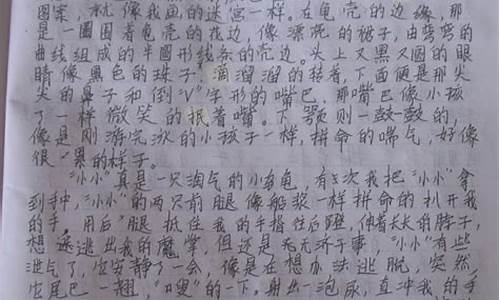 图案，就像我画的迷宫一样。在龟壳的边缘，那
是一圈围着龟壳的花边，像漂亮的裙子，由弯弯的
曲线组成的半圆形线条的壳边。头上又黑又圆的眼
睛像黑色的珠子，滴溜溜的转着，下面便是那尖
尖的鼻子和倒"V"字形的嘴巴，那嘴巴像小孩
子一样微笑的抿着嘴。下颚则一鼓一鼓的，
像是刚游完泳的小孩子一样，拼命的喘气，好像
很累的样子。
"小小"真是一只淘气的小乌龟，有一次我把"小小"拿
到手中，"小小"的两只前腿像船桨一样拼命的扒开我
的手，用后腿抵住我的手指往后蹬，伸着长长的脖子，
想逃出我的魔掌，但还是无济于事。"小小"有些
泄气了，它安静了一会，像是在想办法逃脱，突然
它尾巴一翘，"嗖"的一下，射出一泡尿，直冲我的手